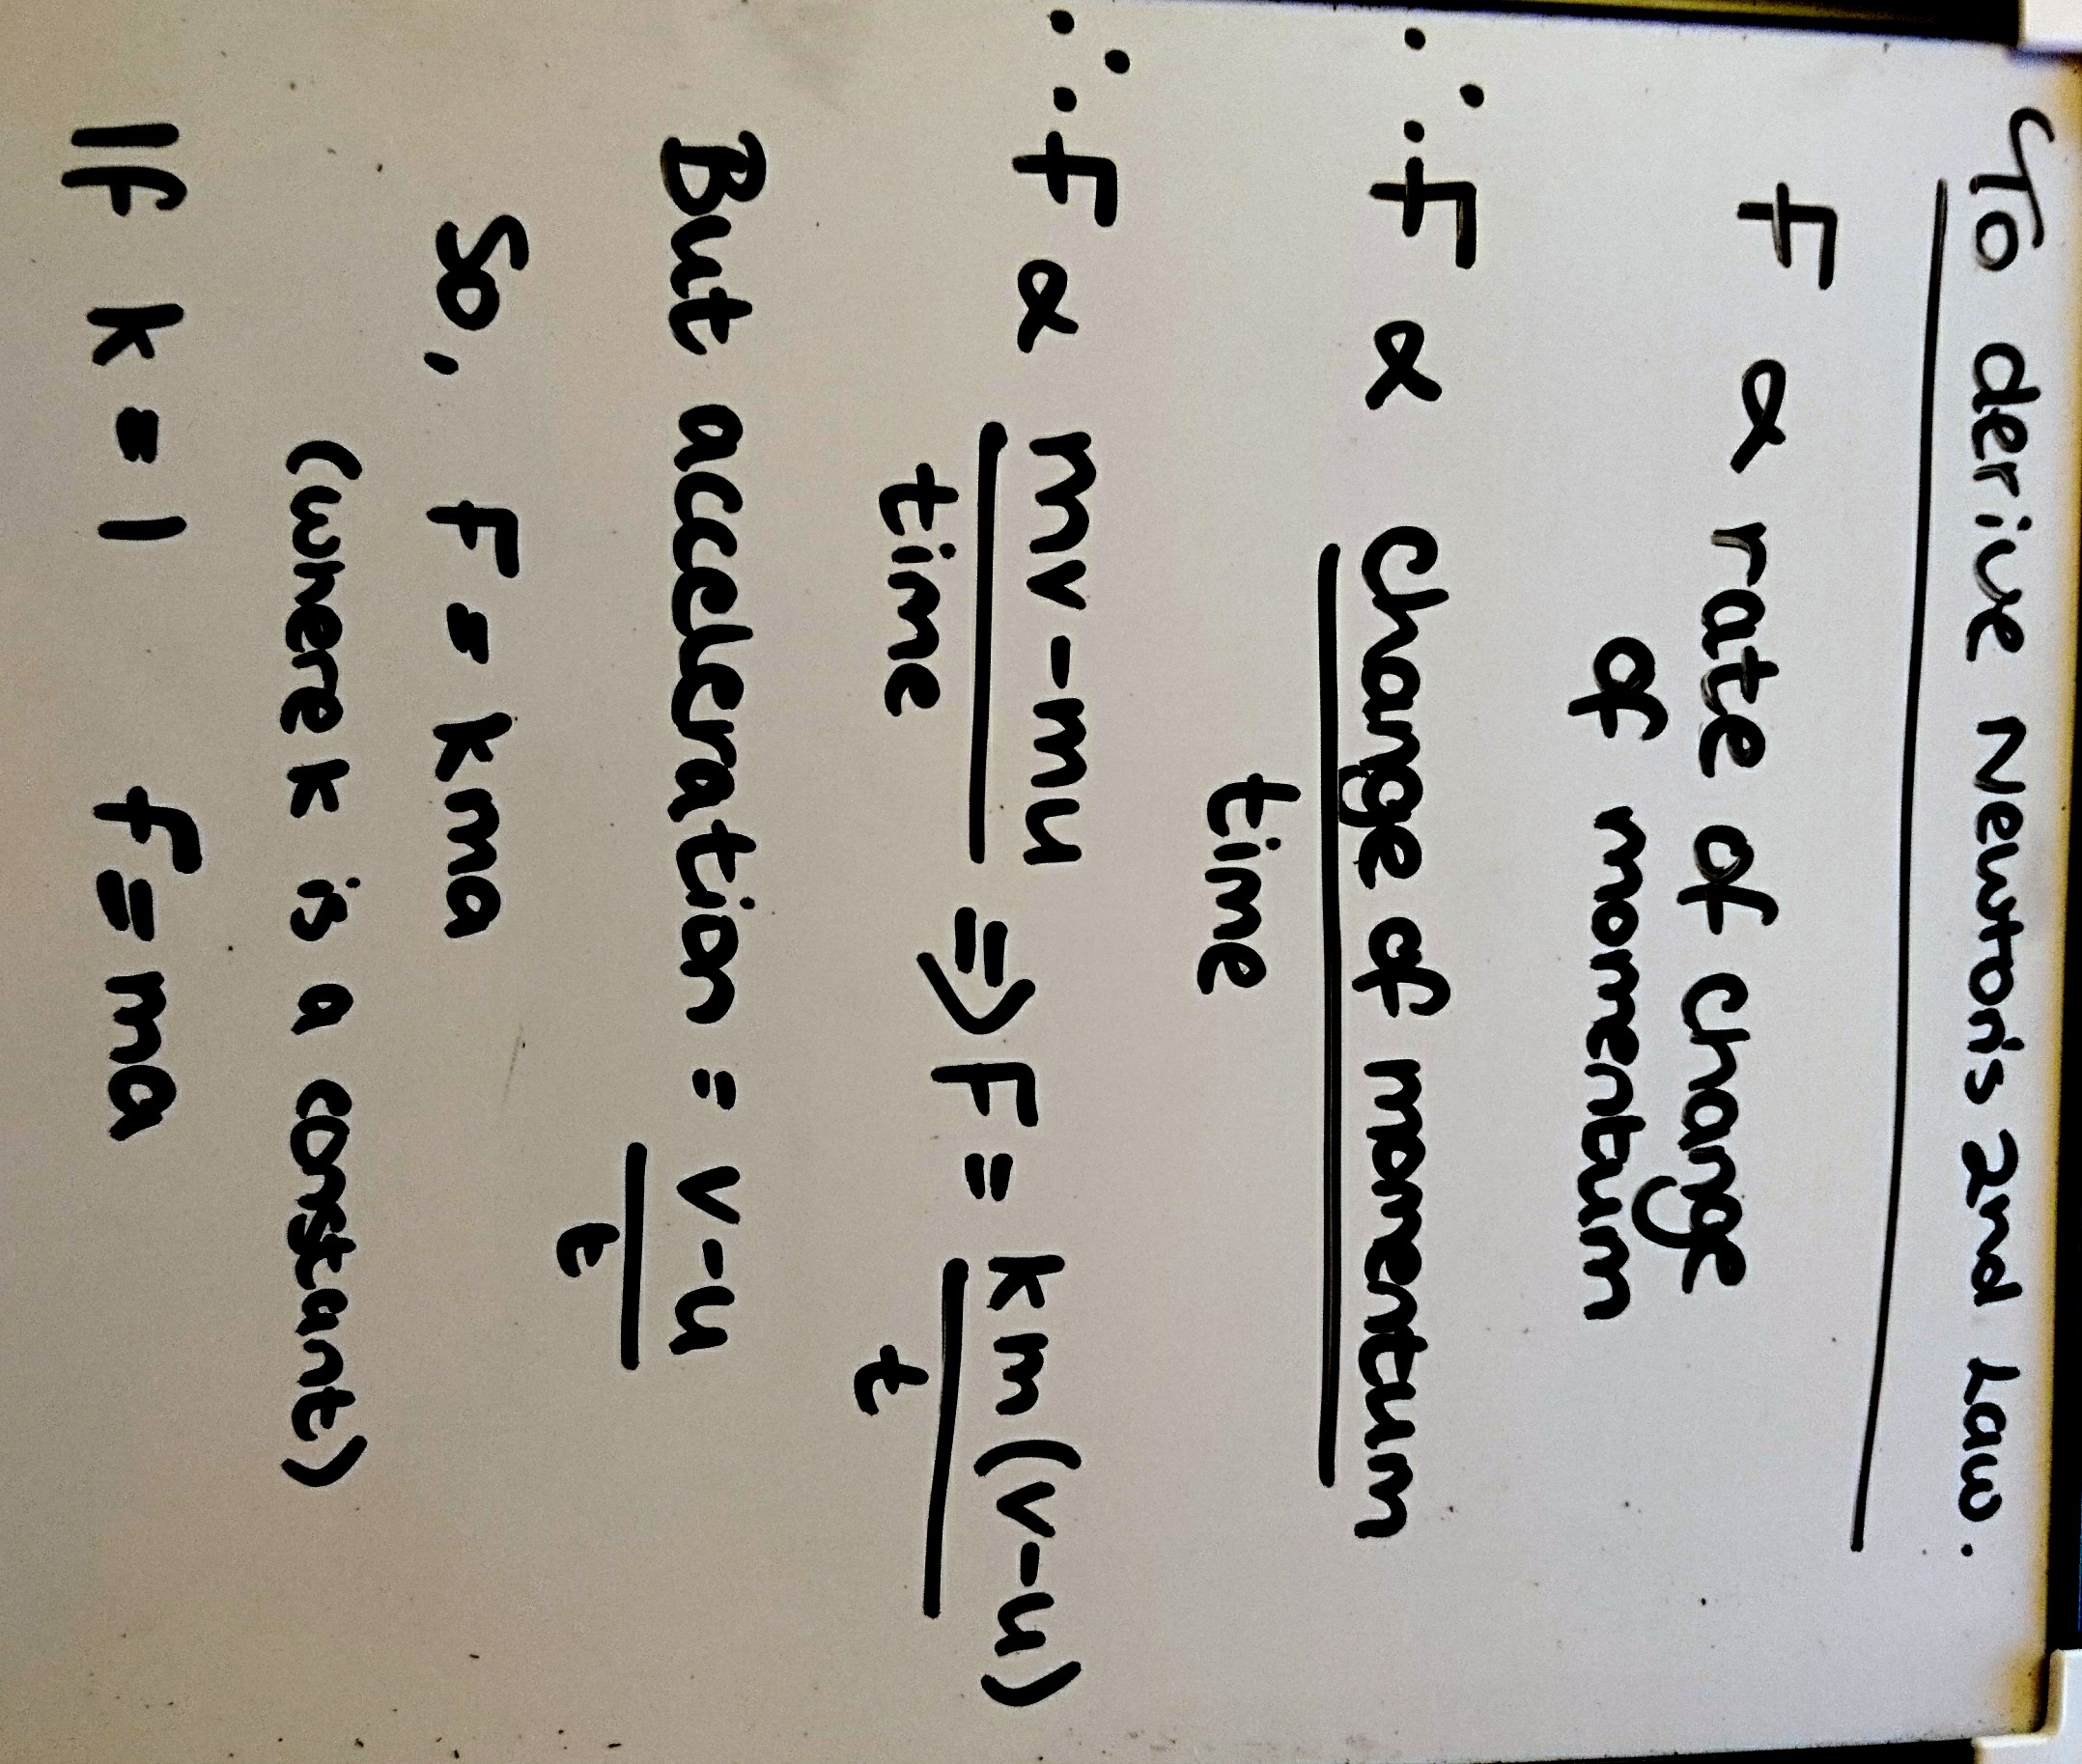 To derive Newton's 2nd Law.
F ∝ rate of change
of momentum
∴ F ∝ change of momentum
time
∴ F ∝ mv-mu ⇒ F = km(v-u)
time t
But acceleration = v-u
t
So, F = kma
(where k is a constant)
If k = 1 f = ma